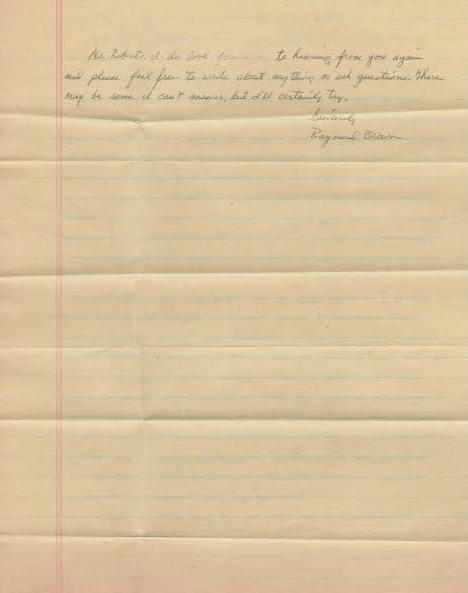 Mr. Roberts, I do look forward to hearing from you again
and please feel free to write about anything or ask questions. There
may be some I can't answer, but I'll certainly try.
Sincerely
Raymond Brown